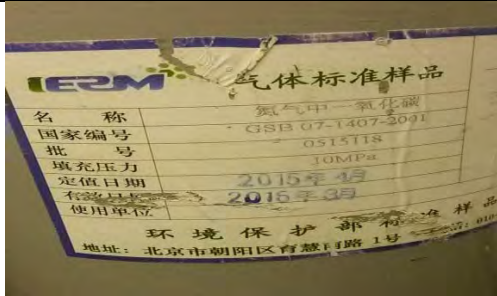 IERM 气体标准样品
名 称 氮气中一氧化碳
国家编号 GSB 07-1407-2001
批 号 0515118
填充压力 10MPa
定值日期 2015年4月
2015年3月
使用单位
环境保护部标准样品
地址：北京市朝阳区育慧南路1号 010